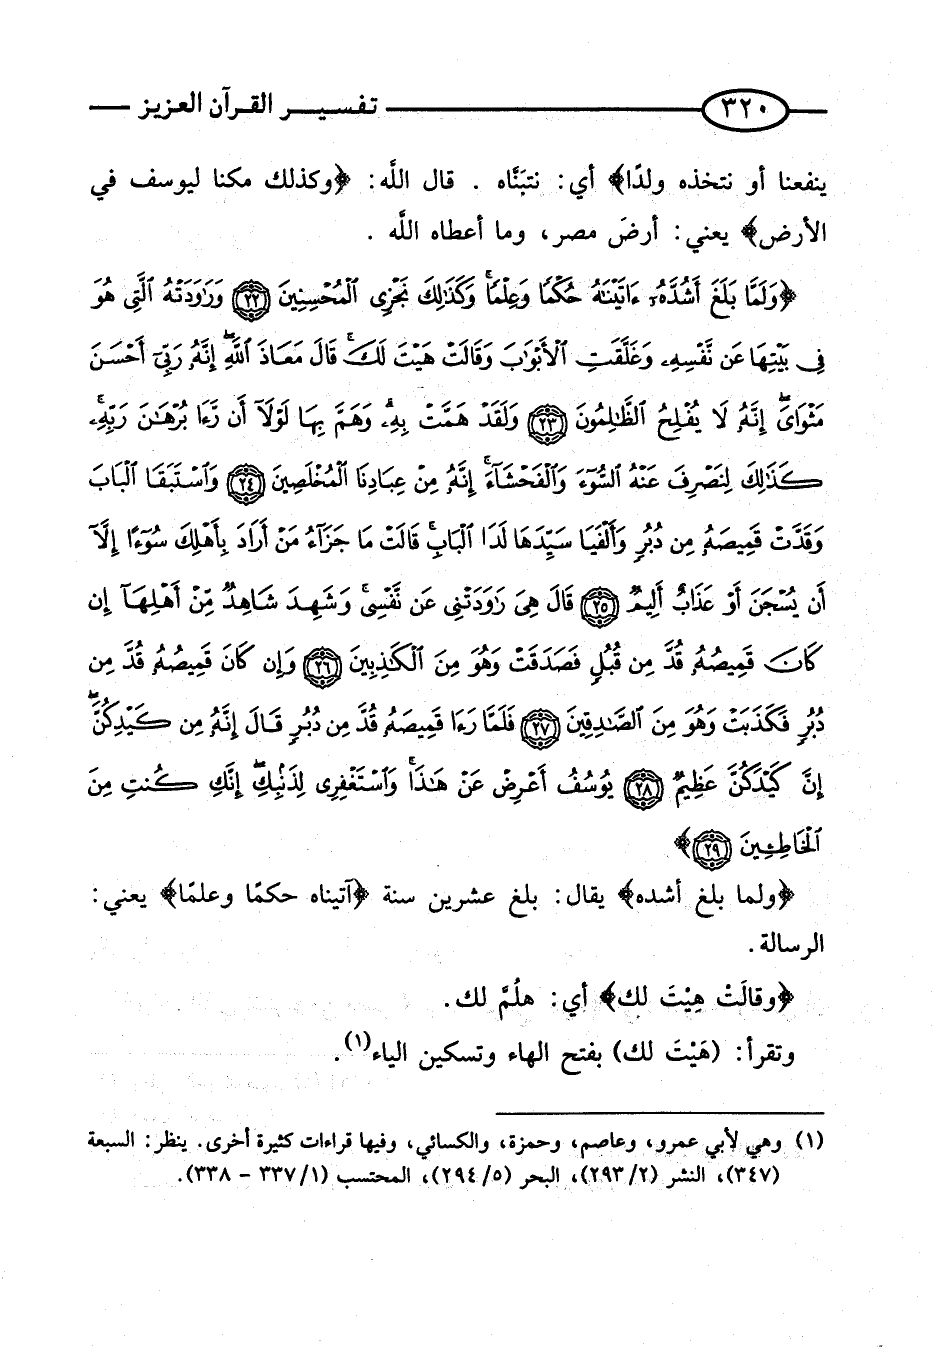 ٣٢٠ تفسير القرآن العزيز
ينفعنا أو نتخذه ولدًا﴾ أي: نتبَنَّاه . قال اللَّه: ﴿وكذلك مكنا ليوسف في
الأرض﴾ يعني: أرضَ مصر، وما أعطاه اللَّه .
﴿وَلَمَّا بَلَغَ أَشُدَّهُۥٓ ءَاتَيْنَٰهُ حُكْمًا وَعِلْمًا ۚ وَكَذَٰلِكَ نَجْزِى ٱلْمُحْسِنِينَ ٢٢ وَرَٰوَدَتْهُ ٱلَّتِى هُوَ
فِى بَيْتِهَا عَن نَّفْسِهِۦ وَغَلَّقَتِ ٱلْأَبْوَٰبَ وَقَالَتْ هَيْتَ لَكَ ۚ قَالَ مَعَاذَ ٱللَّهِ ۖ إِنَّهُۥ رَبِّىٓ أَحْسَنَ
مَثْوَاىَ ۖ إِنَّهُۥ لَا يُفْلِحُ ٱلظَّٰلِمُونَ ٢٣ وَلَقَدْ هَمَّتْ بِهِۦ ۖ وَهَمَّ بِهَا لَوْلَآ أَن رَّءَا بُرْهَٰنَ رَبِّهِۦ ۚ
كَذَٰلِكَ لِنَصْرِفَ عَنْهُ ٱلسُّوٓءَ وَٱلْفَحْشَآءَ ۚ إِنَّهُۥ مِنْ عِبَادِنَا ٱلْمُخْلَصِينَ ٢٤ وَٱسْتَبَقَا ٱلْبَابَ
وَقَدَّتْ قَمِيصَهُۥ مِن دُبُرٍ وَأَلْفَيَا سَيِّدَهَا لَدَا ٱلْبَابِ ۚ قَالَتْ مَا جَزَآءُ مَنْ أَرَادَ بِأَهْلِكَ سُوٓءًا إِلَّآ
أَن يُسْجَنَ أَوْ عَذَابٌ أَلِيمٌ ٢٥ قَالَ هِىَ رَٰوَدَتْنِى عَن نَّفْسِى ۚ وَشَهِدَ شَاهِدٌ مِّنْ أَهْلِهَآ إِن
كَانَ قَمِيصُهُۥ قُدَّ مِن قُبُلٍ فَصَدَقَتْ وَهُوَ مِنَ ٱلْكَٰذِبِينَ ٢٦ وَإِن كَانَ قَمِيصُهُۥ قُدَّ مِن
دُبُرٍ فَكَذَبَتْ وَهُوَ مِنَ ٱلصَّٰدِقِينَ ٢٧ فَلَمَّا رَءَا قَمِيصَهُۥ قُدَّ مِن دُبُرٍ قَالَ إِنَّهُۥ مِن كَيْدِكُنَّ ۖ
إِنَّ كَيْدَكُنَّ عَظِيمٌ ٢٨ يُوسُفُ أَعْرِضْ عَنْ هَٰذَا ۚ وَٱسْتَغْفِرِى لِذَنۢبِكِ ۖ إِنَّكِ كُنتِ مِنَ
ٱلْخَاطِـِٔينَ ٢٩﴾
﴿ولما بلغ أشده﴾ يقال: بلغ عشرين سنة ﴿آتيناه حكمًا وعلمًا﴾ يعني:
الرسالة.
﴿وقالَتْ هِيْتَ لك﴾ أي: هلُمَّ لك.
وتقرأ: (هَيْتَ لك) بفتح الهاء وتسكين الياء(١).
(١) وهي لأبي عمرو، وعاصم، وحمزة، والكسائي، وفيها قراءات كثيرة أخرى. ينظر: السبعة
(٣٤٧)، النشر (٢/ ٢٩٣)، البحر (٥/ ٢٩٤)، المحتسب (١/ ٣٣٧ - ٣٣٨).